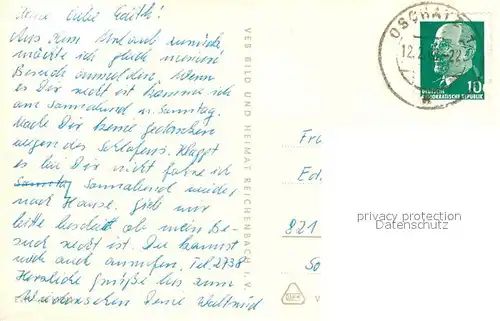 Meine liebe Edith!
Aus dem Urlaub zurück
möchte ich gleich meinen
Besuch anmelden. Wenn
es Dir recht ist komme ich
am Sonnabend u. Sonntag.
Mache Dir keine Gedanken
wegen des Schlafens. Klappt
es bei Dir nicht fahre ich
Sonntag Sonnabend wieder
nach Hause. Gieb mir
bitte bescheid ob mein Be-
such recht ist. Du kannst
mich auch anrufen. Tel. 2738
Herzliche Grüße bis zum
Wiedersehen Deine Waltraud
VEB BILD UND HEIMAT REICHENBACH I. V.
OSCHATZ
12.
22
10
DEUTSCHE
DEMOKRATISCHE REPUBLIK
Fr
Ed
821
So
V
privacy protection
watermark